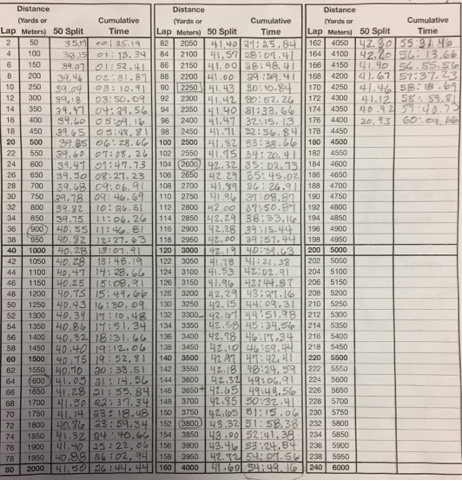 Distance Distance Distance
(Yards or Cumulative (Yards or Cumulative (Yards or Cumulative
Lap Meters) 50 Split Time Lap Meters) 50 Split Time Lap Meters) 50 Split Time
2 50 35.19 00:35.19 82 2050 41.40 27:25.84 162 4050 42.30 55:31.46
4 100 38.15 01:13.34 84 2100 41.57 28:07.41 164 4100 42.20 56:13.66
6 150 39.07 01:52.41 86 2150 41.00 28:48.41 166 4150 41.90 56:55.56
8 200 39.46 02:31.87 88 2200 41.00 29:29.41 168 4200 41.67 57:37.23
10 250 39.04 03:10.91 90 2250 41.43 30:10.84 170 4250 41.46 58:18.69
12 300 39.18 03:50.09 92 2300 41.42 30:52.26 172 4300 41.12 58:59.81
14 350 39.47 04:29.56 94 2350 41.40 31:33.66 174 4350 40.92 59:40.73
16 400 39.60 05:09.16 96 2400 41.47 32:15.13 176 4400 20.93 60:01.66
18 450 39.65 05:48.81 98 2450 41.71 32:56.84 178 4450
20 500 39.85 06:28.66 100 2500 41.82 33:38.66 180 4500
22 550 39.60 07:08.26 102 2550 41.75 34:20.41 182 4550
24 600 39.47 07:47.73 104 2600 42.32 35:02.73 184 4600
26 650 39.50 08:27.23 106 2650 42.29 35:45.02 186 4650
28 700 39.68 09:06.91 108 2700 41.89 36:26.91 188 4700
30 750 39.78 09:46.69 110 2750 41.96 37:08.87 190 4750
32 800 39.82 10:26.51 112 2800 42.00 37:50.87 192 4800
34 850 39.75 11:06.26 114 2850 42.29 38:33.16 194 4850
36 900 40.55 11:46.81 116 2900 42.28 39:15.44 196 4900
38 950 40.82 12:27.63 118 2950 42.00 39:57.44 198 4950
40 1000 40.28 13:07.91 120 3000 42.19 40:39.63 200 5000
42 1050 40.28 13:48.19 122 3050 41.75 41:21.38 202 5050
44 1100 40.47 14:28.66 124 3100 41.53 42:02.91 204 5100
46 1150 40.25 15:08.91 126 3150 41.96 42:44.87 206 5150
48 1200 40.75 15:49.66 128 3200 42.29 43:27.16 208 5200
50 1250 40.43 16:30.09 130 3250 42.15 44:09.31 210 5250
52 1300 40.39 17:10.48 132 3300 42.67 44:51.98 212 5300
54 1350 40.86 17:51.34 134 3350 42.58 45:34.56 214 5350
56 1400 40.32 18:31.66 136 3400 42.78 46:17.34 216 5400
58 1450 40.40 19:12.06 138 3450 42.10 46:59.44 218 5450
60 1500 40.75 19:52.81 140 3500 42.97 47:42.41 220 5500
62 1550 40.70 20:33.51 142 3550 42.18 48:24.59 222 5550
64 1600 41.05 21:14.56 144 3600 42.32 49:06.91 224 5600
66 1650 41.28 21:55.84 146 3650 42.65 49:49.56 226 5650
68 1700 41.50 22:37.34 148 3700 42.85 50:32.41 228 5700
70 1750 41.14 23:18.48 150 3750 42.65 51:15.06 230 5750
72 1800 40.86 23:59.34 152 3800 43.32 51:58.38 232 5800
74 1850 41.32 24:40.66 154 3850 43.00 52:41.38 234 5850
76 1900 41.40 25:22.06 156 3900 43.46 53:24.84 236 5900
78 1950 40.88 26:02.94 158 3950 42.72 54:07.56 238 5950
80 2000 41.50 26:44.44 160 4000 41.60 54:49.16 240 6000